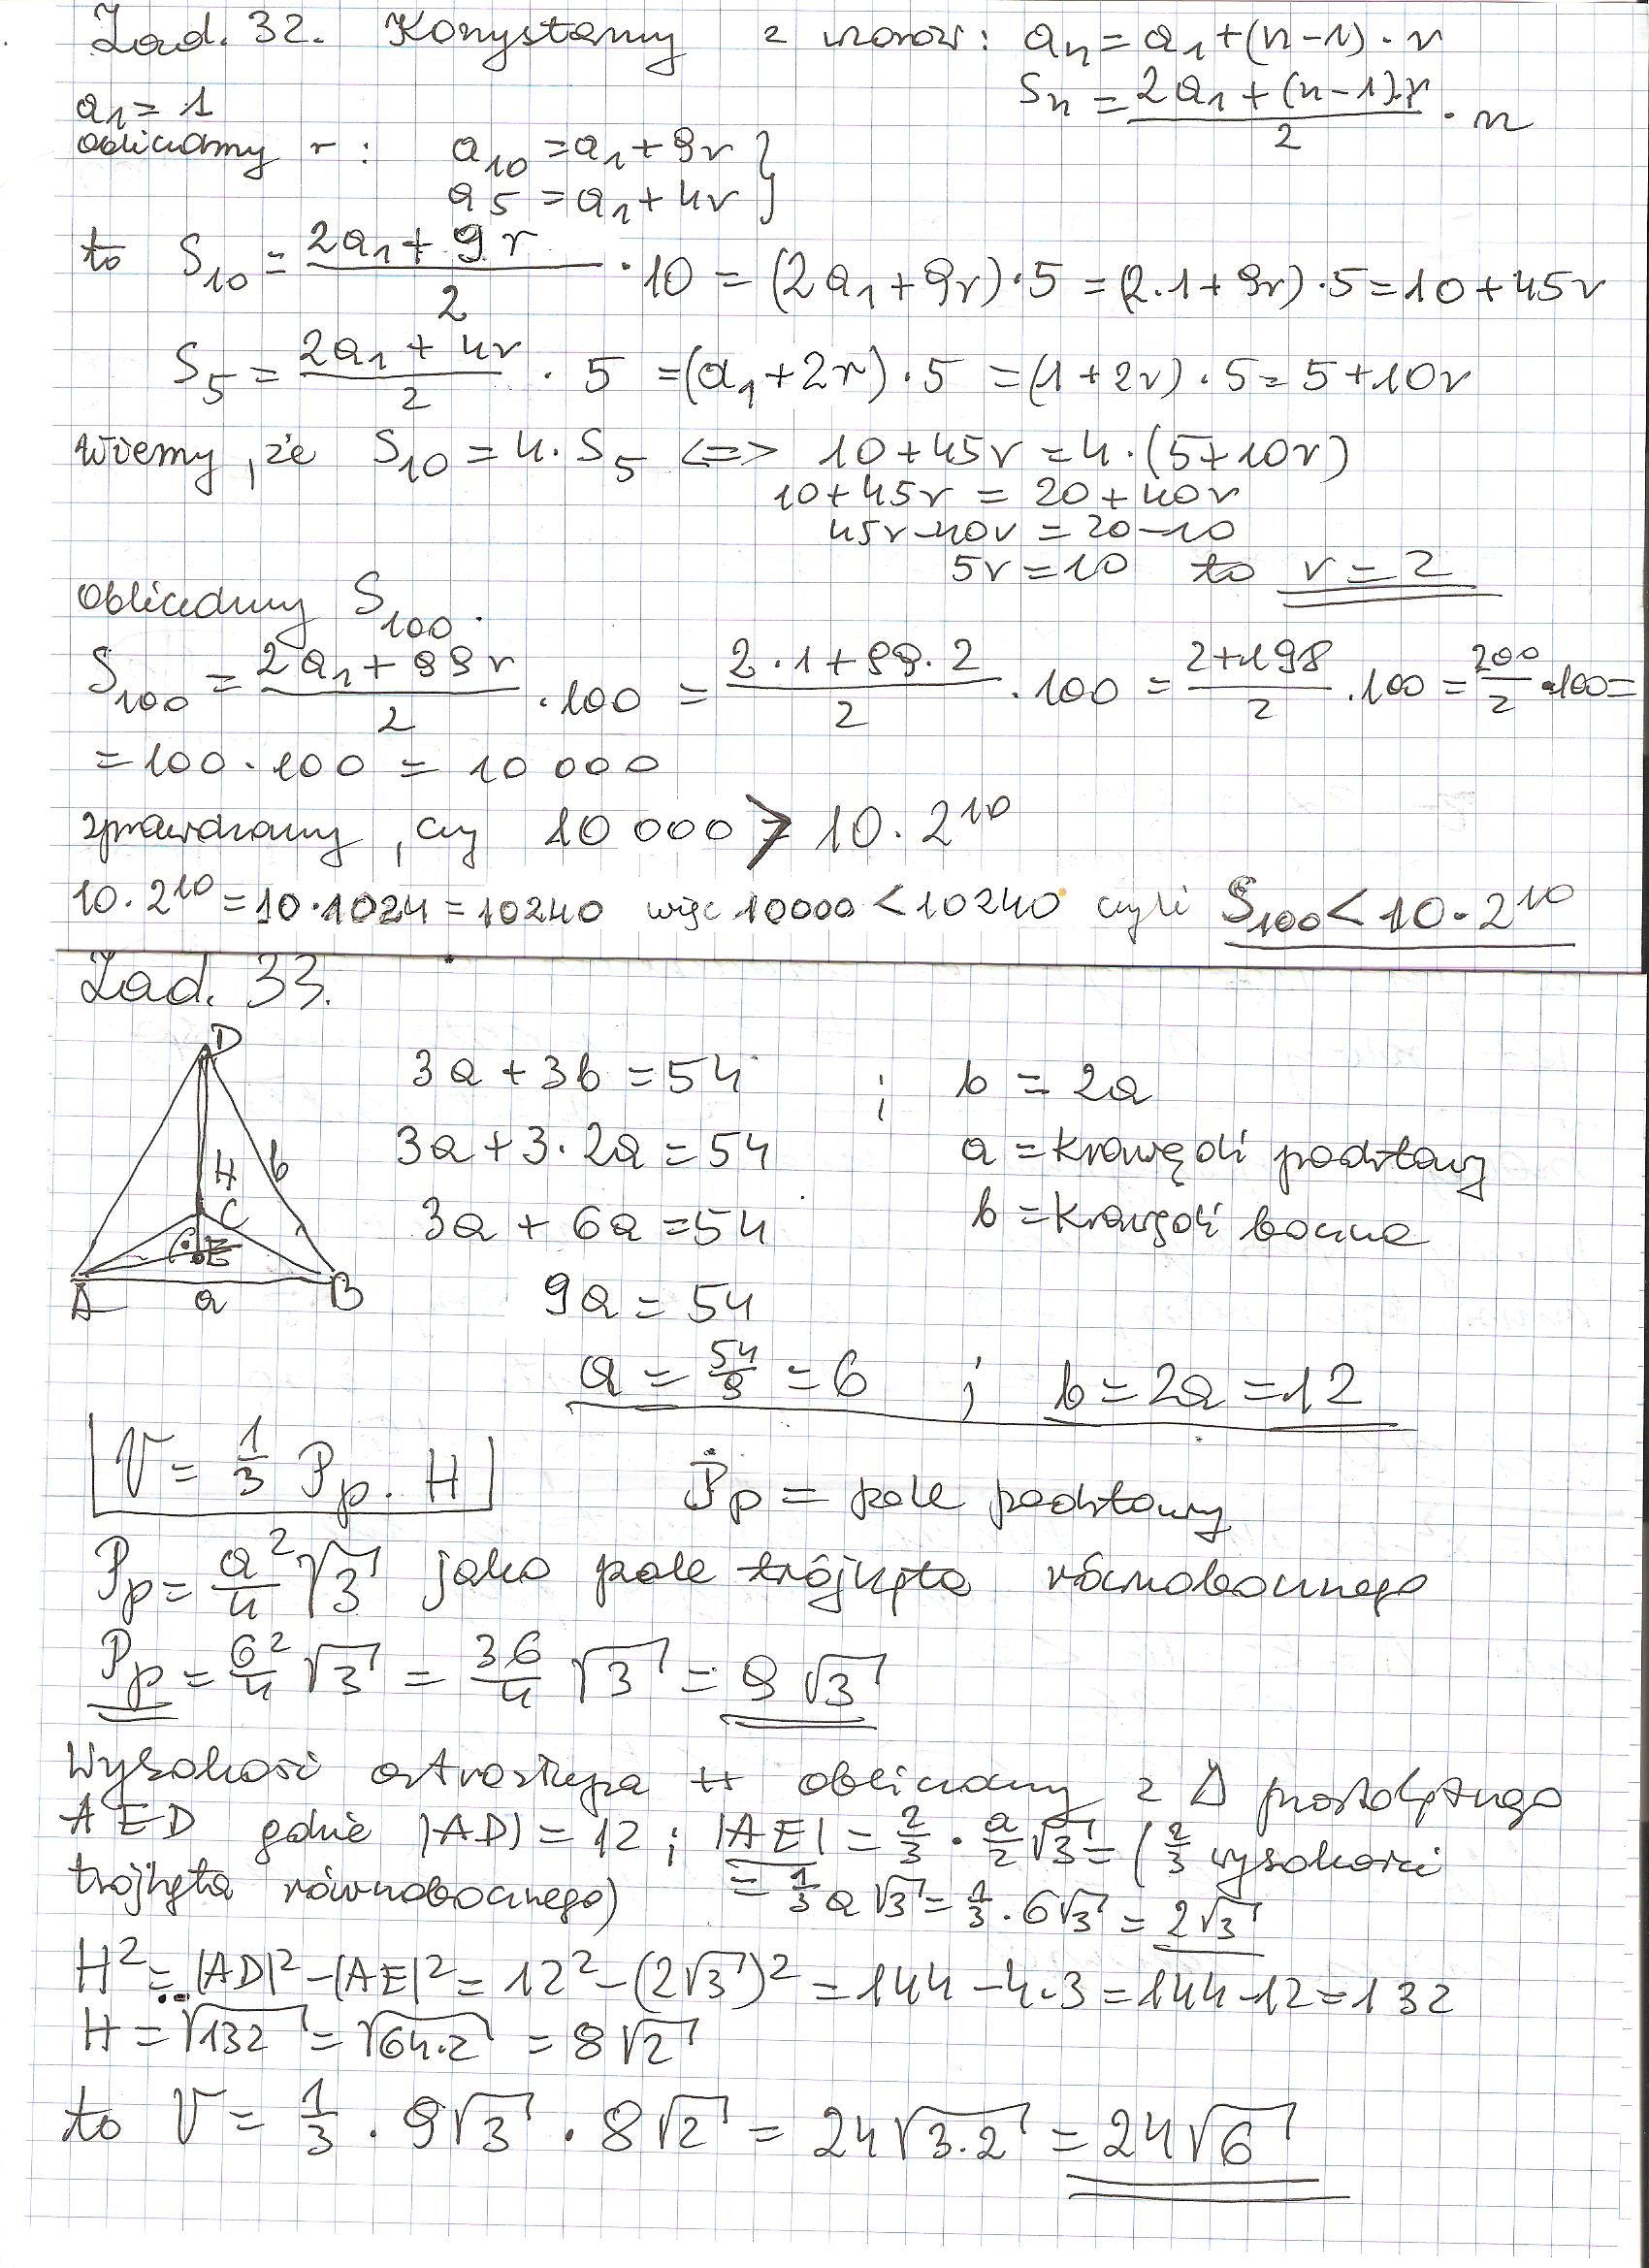 Zad. 32. Korzystamy z wzorów: aₙ = a₁ + (n-1)·r
Sₙ = (2a₁ + (n-1)·r)/2 · n
a₁ = 1
obliczamy r: a₁₀ = a₁ + 9r }
a₅ = a₁ + 4r }
to S₁₀ = (2a₁ + 9r)/2 · 10 = (2a₁ + 9r)·5 = (2·1 + 9r)·5 = 10 + 45r
S₅ = (2a₁ + 4r)/2 · 5 = (a₁ + 2r)·5 = (1 + 2r)·5 = 5 + 10r
Wiemy, że S₁₀ = 4·S₅ <=> 10 + 45r = 4·(5 + 10r)
10 + 45r = 20 + 40r
45r - 40r = 20 - 10
5r = 10 to r = 2
Obliczamy S₁₀₀.
S₁₀₀ = (2a₁ + 99r)/2 · 100 = (2·1 + 99·2)/2 · 100 = (2+198)/2 · 100 = 200/2 · 100 =
= 100·100 = 10 000
sprawdzamy, czy 10 000 > 10·2¹⁰
10·2¹⁰ = 10·1024 = 10240 więc 10000 < 10240 czyli S₁₀₀ < 10·2¹⁰
Zad. 33.
D
H b
C
E
A a B
3a + 3b = 54 ; b = 2a
3a + 3·2a = 54 a = krawędź podstawy
3a + 6a = 54 b = krawędź boczna
9a = 54
a = 54/9 = 6 ; b = 2a = 12
V = 1/3 Pp · H Pp = pole podstawy
Pp = a²/4 √3 jako pole trójkąta równobocznego
Pp = 6²/4 √3 = 36/4 √3 = 9√3
Wysokość ostrosłupa H obliczamy z Δ prostokątnego
AED gdzie |AD| = 12 ; |AE| = 2/3 · a/2 √3 = (2/3 wysokości
trójkąta równobocznego) = 1/3 a√3 = 1/3 · 6√3 = 2√3
H² = |AD|² - |AE|² = 12² - (2√3)² = 144 - 4·3 = 144 - 12 = 132
H = √132 = √64·2 = 8√2
to V = 1/3 · 9√3 · 8√2 = 24√3·2 = 24√6